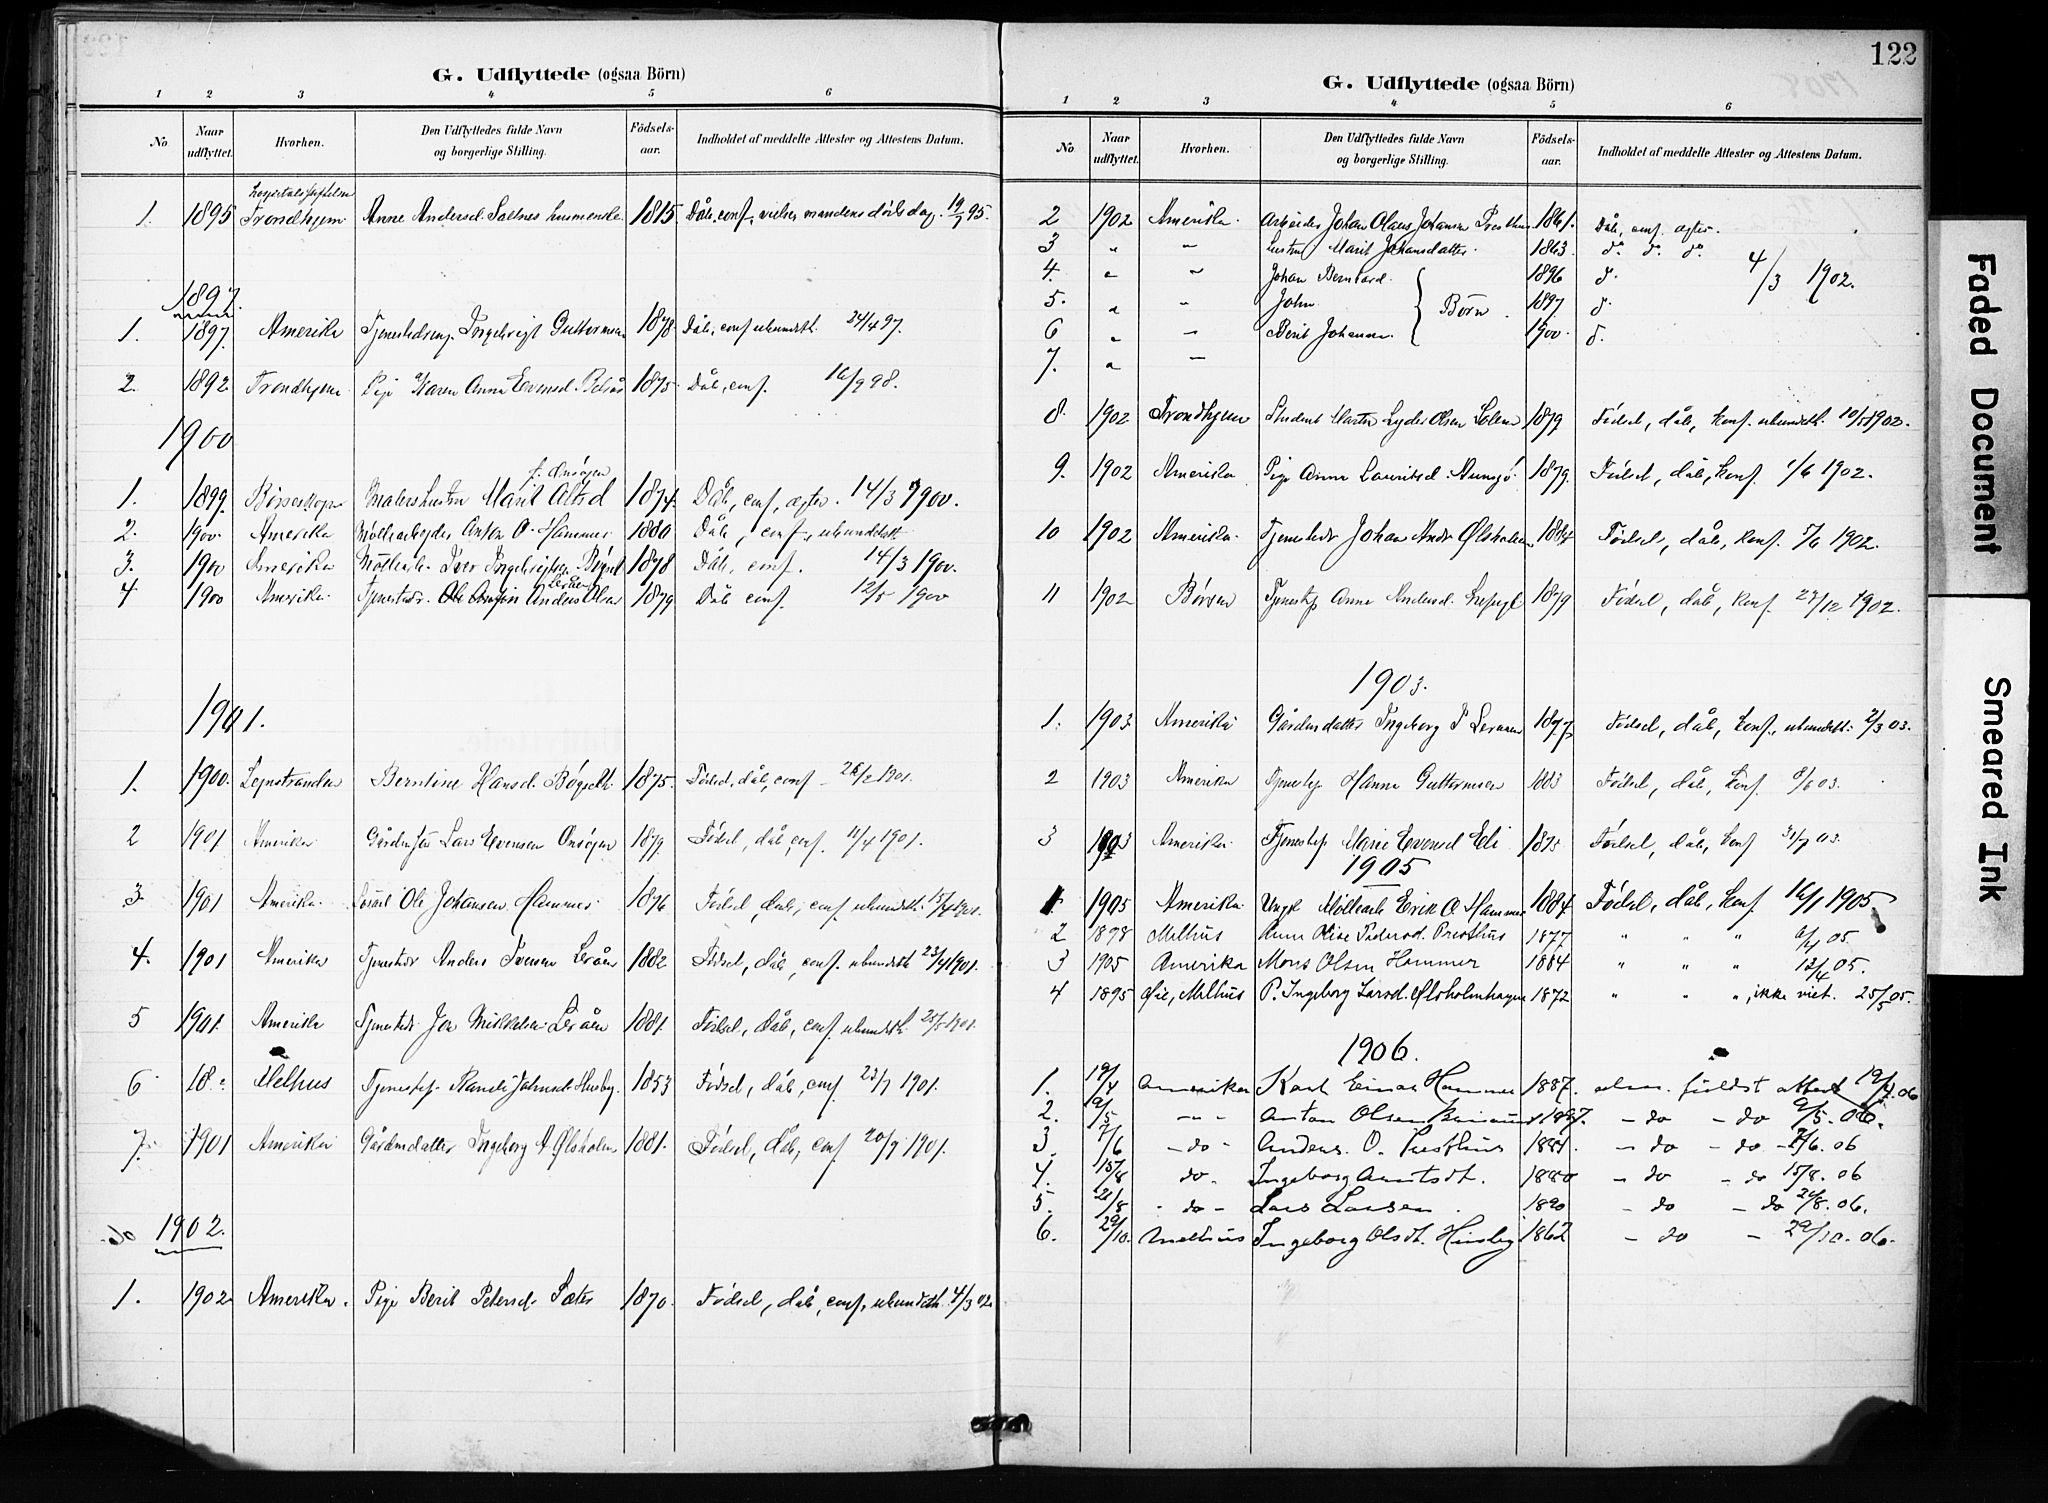 G. Udflyttede (ogsaa Börn)
1 2 3 4 5 6
No Naar udflyttet. Hvorhen. Den Udflyttedes fulde Navn og borgerlige Stilling. Födsels-aar. Indholdet af meddelte Attester og Attestens Datum.
1. 1895 Trondhjem Anne Andersd. Saltnes 1815. Dåb, conf., vielse, mandens dödsdag. 95.
1897.
1. 1897. Amerika Ingebrigt Guttormsen 1878 Dåb, conf. ubundeth. 24/4 97.
2. 1892 Trondhjem Pige Karen Anna Evensd. 1875 Dåb, conf. 16/9 98.
1900
1. 1899. Børseskogn Malerhustru Marit 1874. Dåb, conf, 14/3 1900.
2. 1900. Amerika Møllearbejder Anton O. Hammer 1880 Dåb, conf, ubundeth
3. 1900 Amerika Møllearb. Iver Ingebrigtsen 1878 Dåb, conf. 14/3 1900.
4 1900 Amerika. Tjenestedr. Anders Olsen Leråen 1879 Dåb conf. 12/5 1900
1901.
1. 1900. Lejnstranden Berntine Hansd. 1875. Fødsel, dåb, conf 1901.
2 1901 Amerika Lars Evensen Onsøjen 1879. Fødsel, dåb, conf. 11/4 1901.
3. 1901 Amerika. Ole Johansen Hammer 1876 Fødsel, dåb, conf. ubundeth. 15/4 1901.
4. 1901 Amerika Tjenestedr Anders Iversen Leråen 1882 Fødsel, dåb, conf. ubundeth 23/4 1901.
5 1901. Amerika Tjenestedr Jon Mikkelsen Leråen 1881. Fødsel, Dåb, conf. ubundeth 25/5 1901.
6 Melhus Tjenestep. Randi Johnsd. Husby. 1853 Fødsel, dåb, conf 23/7 1901.
7. 1901 Amerika Gårdmdatter Ingeborg A. Ølsholm 1881. Fødsel, dåb, conf. 20/9 1901.
do 1902.
1. 1902 Amerika. Pige Berit Petersd. Sæter 1870. Fødsel, dåb, conf, ubundeth. 4/3 02.
122
G. Udflyttede (ogsaa Börn)
1 2 3 4 5 6
No Naar udflyttet. Hvorhen. Den Udflyttedes fulde Navn og borgerlige Stilling. Födsels-aar. Indholdet af meddelte Attester og Attestens Datum.
2 1902 Amerika. Arbeider Johan Olaus Johansen Presthus 1861. Dåb, conf.
3 " " hustru Marit Johansdatter. 1863. do. do. do.
4. " " Johan Bernhard. 1896 d. 4/3 1902.
5. " " John Børn. 1897. d.
6 " " Berit Johanna. 1900. d.
7. " "
8. 1902 Trondhjem Student Martin Lyder Olsen Solem 1879 Fødsel, dåb, konf. ubundeth. 10/5 1902.
9. 1902 Amerika Pige Anna Lauritsd. 1879. Fødsel, dåb, konf 1/6 1902.
10 1902 Amerika. Tjenestedr Johan Andr. Ølsholm 1884 Fødsel, dåb, konf. 5/6 1902.
11 1902 Børsen Tjenestep Anne Andersd. 1879 Fødsel, dåb, konf. 27/12 1902.
1903.
1. 1903 Amerika Gårdmdatter Ingeborg P. Leraaen 1877 Fødsel, dåb, konf., ubundeth. 2/3 03.
2 1903 Amerika Tjenestep Hanna Guttormsen 1883 Fødsel, dåb, konf. 8/6 03.
3 1903 Amerika. Tjenestep Marie Evensd Eli 1875 Fødsel, dåb, konf 31/7 03.
1905
1. 1905 Amerika Ungk Møllearb Erik O. Hammer 1884 Fødsel, dåb, konf. 16/1 1905.
2 1898 Melhus Anne Olise Pedersd. Presthus 1877 " " " 05.
3 1905 Amerika Mons Olsen Hammer 1884 " " " 12/4 05.
4 1895 Øie, Melhus P. Ingeborg Larsd. Ølsholmhagen 1872 " " ", ikke viet. 25/5 05.
1906.
1. 19/4 Amerika Karl Einar Hammer 1887. alm. fuldst attest 19/4. 06
2. 9/5 " " Anton Olsen 1887. – do – do 9/5. 06.
3. 7/6 – do – Anders. O. Presthus 1881. – do – do – 7/6. 06
4. 15/8 do – Ingeborg Arntsdt. 1880 – do – do 15/8. 06
5. 21/8 – do – Lars Larsen. 1890 – do – do 21/8. 06.
6. 29/10. Melhus Ingeborg Olsdt. Husby 1862 – do – 29/10. 06.
Faded Document
Smeared Ink